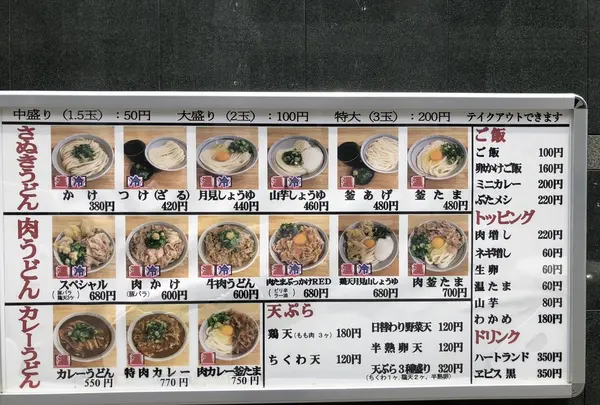 中盛り（1.5玉）：50円　大盛り（2玉）：100円　特大（3玉）：200円　テイクアウトできます
さぬきうどん
温 冷 かけ 380円
冷 つけ(ざる) 420円
温 冷 月見しょうゆ 440円
温 冷 山芋しょうゆ 460円
温 釜あげ 480円
温 釜たま 480円
肉うどん
温 冷 スペシャル （豚バラ 鶏天2ヶ） 680円
温 冷 肉かけ （豚バラ） 600円
温 冷 牛肉うどん 600円
温 冷 肉たまぶっかけRED （ピリ辛ラー油） 680円
温 冷 鶏天月見しょうゆ 680円
温 肉釜たま 700円
カレーうどん
温 カレーうどん 550円
温 特肉カレー 770円
温 肉カレー釜たま 750円
天ぷら
鶏天(もも肉 3ヶ) 180円
ちくわ天 120円
日替わり野菜天 120円
半熟卵天 120円
天ぷら3種盛り 320円
(ちくわ1ヶ,鶏天2ヶ,半熟卵)
ご飯
ご飯 100円
卵かけご飯 160円
ミニカレー 200円
ぶたメシ 220円
トッピング
肉増し 220円
ネギ増し 60円
生卵 60円
温たま 60円
山芋 80円
わかめ 180円
ドリンク
ハートランド 350円
ヱビス黒 350円